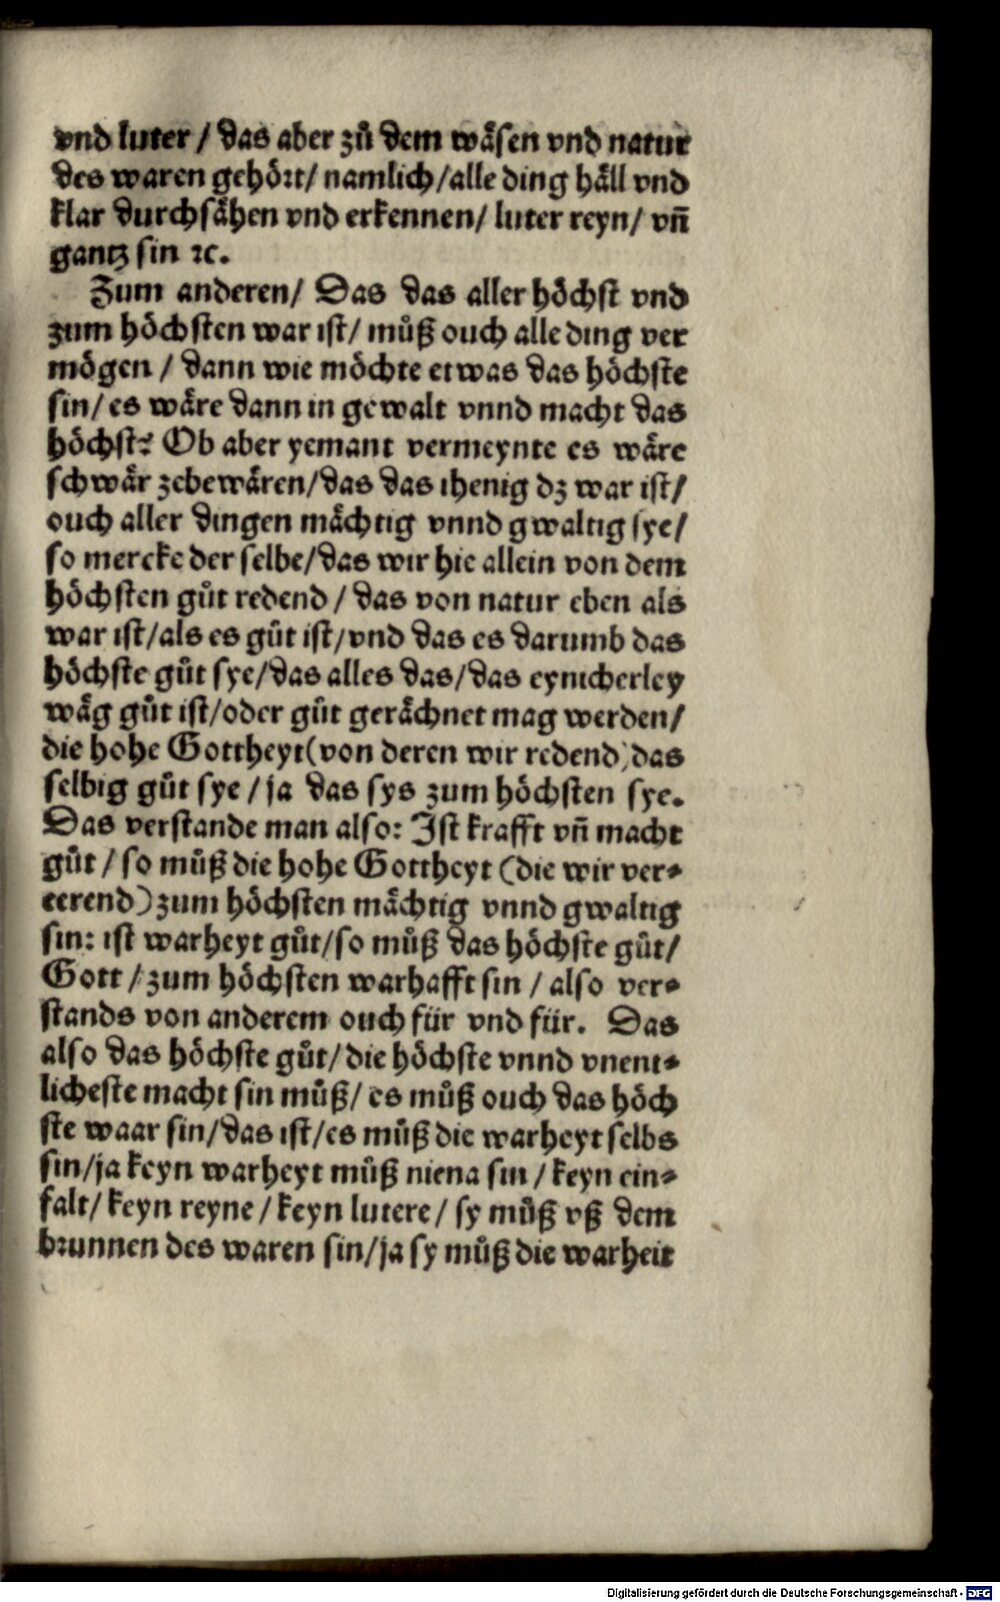 vnd luter / das aber zů dem wäsen vnd natur
des waren gehört / namlich / alle ding häll vnd
klar durchsähen vnd erkennen / luter reyn / vñ
gantz sin ꝛc.
Zum anderen / Das das aller höchst vnd
zum höchsten war ist / můß ouch alle ding ver
mögen / dann wie möchte etwas das höchste
sin / es wäre dann in gewalt vnnd macht das
höchst? Ob aber yemant vermeynte es wäre
schwär zebewären / das das ihenig dz war ist /
ouch aller dingen mächtig vnnd gwaltig sye /
so mercke der selbe / das wir hie allein von dem
höchsten gůt redend / das von natur eben als
war ist / als es gůt ist / vnd das es darumb das
höchste gůt sye / das alles das / das eynicherley
wäg gůt ist / oder gůt gerächnet mag werden /
die hohe Gottheyt (von deren wir redend) das
selbig gůt sye / ja das sys zum höchsten sye.
Das verstande man also: Ist krafft vñ macht
gůt / so můß die hohe Gottheyt (die wir ver⸗
eerend) zum höchsten mächtig vnnd gwaltig
sin: ist warheyt gůt / so můß das höchste gůt /
Gott / zum höchsten warhafft sin / also ver⸗
stands von anderem ouch für vnd für. Das
also das höchste gůt / die höchste vnnd vnent⸗
licheste macht sin můß / es můß ouch das höch
ste waar sin / das ist / es můß die warheyt selbs
sin / ja keyn warheyt můß niena sin / keyn ein⸗
falt / keyn reyne / keyn lutere / sy můß vß dem
brunnen des waren sin / ja sy můß die warheit
Digitalisierung gefördert durch die Deutsche Forschungsgemeinschaft - DFG